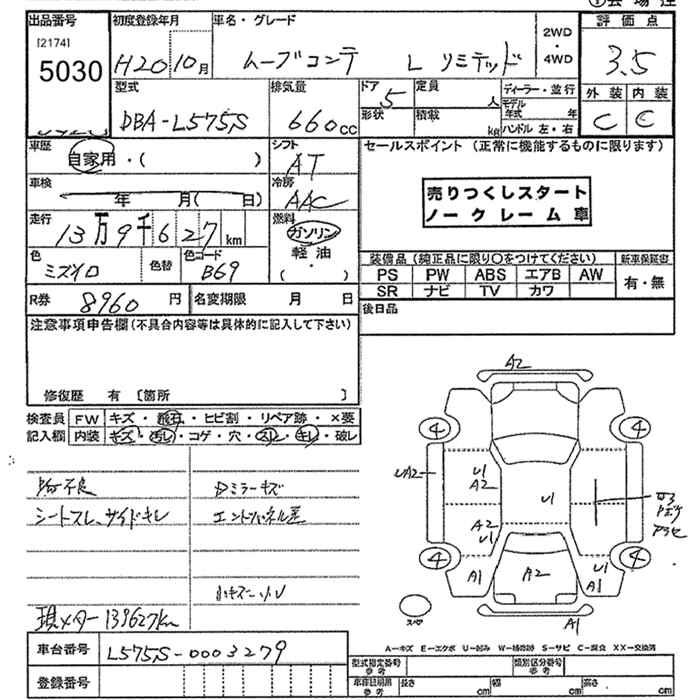 出品番号
[2174]
5030
初度登録年月
H20 10月
車名・グレード
ムーブコンテ L リミテッド
2WD
・
4WD
評価点
3.5
外装 内装
C C
型式
DBA-L575S
排気量
660cc
ドア
5
形状
定員
人
積載
kg
ディーラー・並行
モデル
年式 年
ハンドル 左・右
車歴
自家用・( )
シフト
AT
車検
年 月( 日)
冷房
AAC
走行
13万9千627km
燃料
ガソリン
軽油
( ・ )
色
ミズイロ
色替
色コード
B69
R券 8960円
名変期限 月 日
セールスポイント (正常に機能するものに限ります)
売りつくしスタート
ノークレーム車
装備品(純正品に限り○をつけてください)
新車保証書
PS PW ABS エアB AW
SR ナビ TV カワ
有・無
後日品
注意事項申告欄(不具合内容等は具体的に記入して下さい)
修復歴 有 [箇所 ]
検査員
記入欄
FW キズ・飛石・ヒビ割・リペア跡・×要
内装 キズ・汚レ・コゲ・穴・スレ・キレ・破レ
シートスレ、サイドキレ
現メーター139627km
Dミラーキズ
エンドパネル差
車台番号
L575S-0003279
登録番号
A2
4 4
UA2
U1
A2
U1
A2
U1
4 4
A1
A2
U1
A1
A1
スペア
A-キズ E-エクボ U-凹み W-補修跡 S-サビ C-腐食 XX-交換済
型式指定番号
参考
類別区分番号
参考
車庫証明用
参考
長さ cm
幅 cm
高さ cm